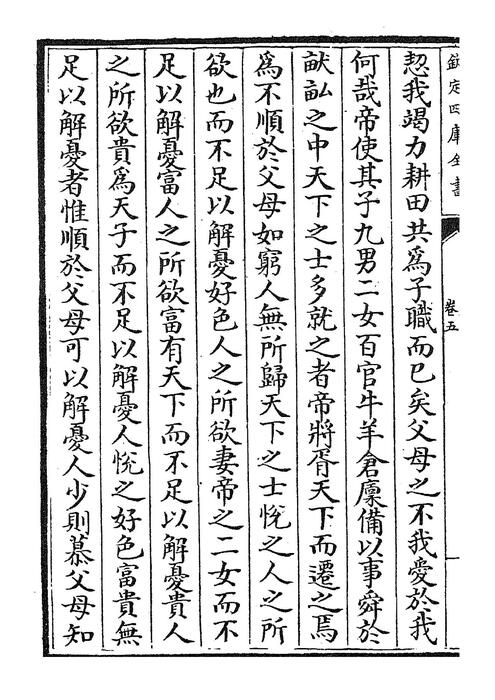 欽定四庫全書
卷五
恝我竭力耕田共為子職而已矣父母之不我愛於我
何哉帝使其子九男二女百官牛羊倉廪備以事舜於
畎畝之中天下之士多就之者帝將胥天下而遷之焉
為不順於父母如窮人無所歸天下之士悅之人之所
欲也而不足以解憂好色人之所欲妻帝之二女而不
足以解憂富人之所欲富有天下而不足以解憂貴人
之所欲貴為天子而不足以解憂人悅之好色富貴無
足以解憂者惟順於父母可以解憂人少則慕父母知